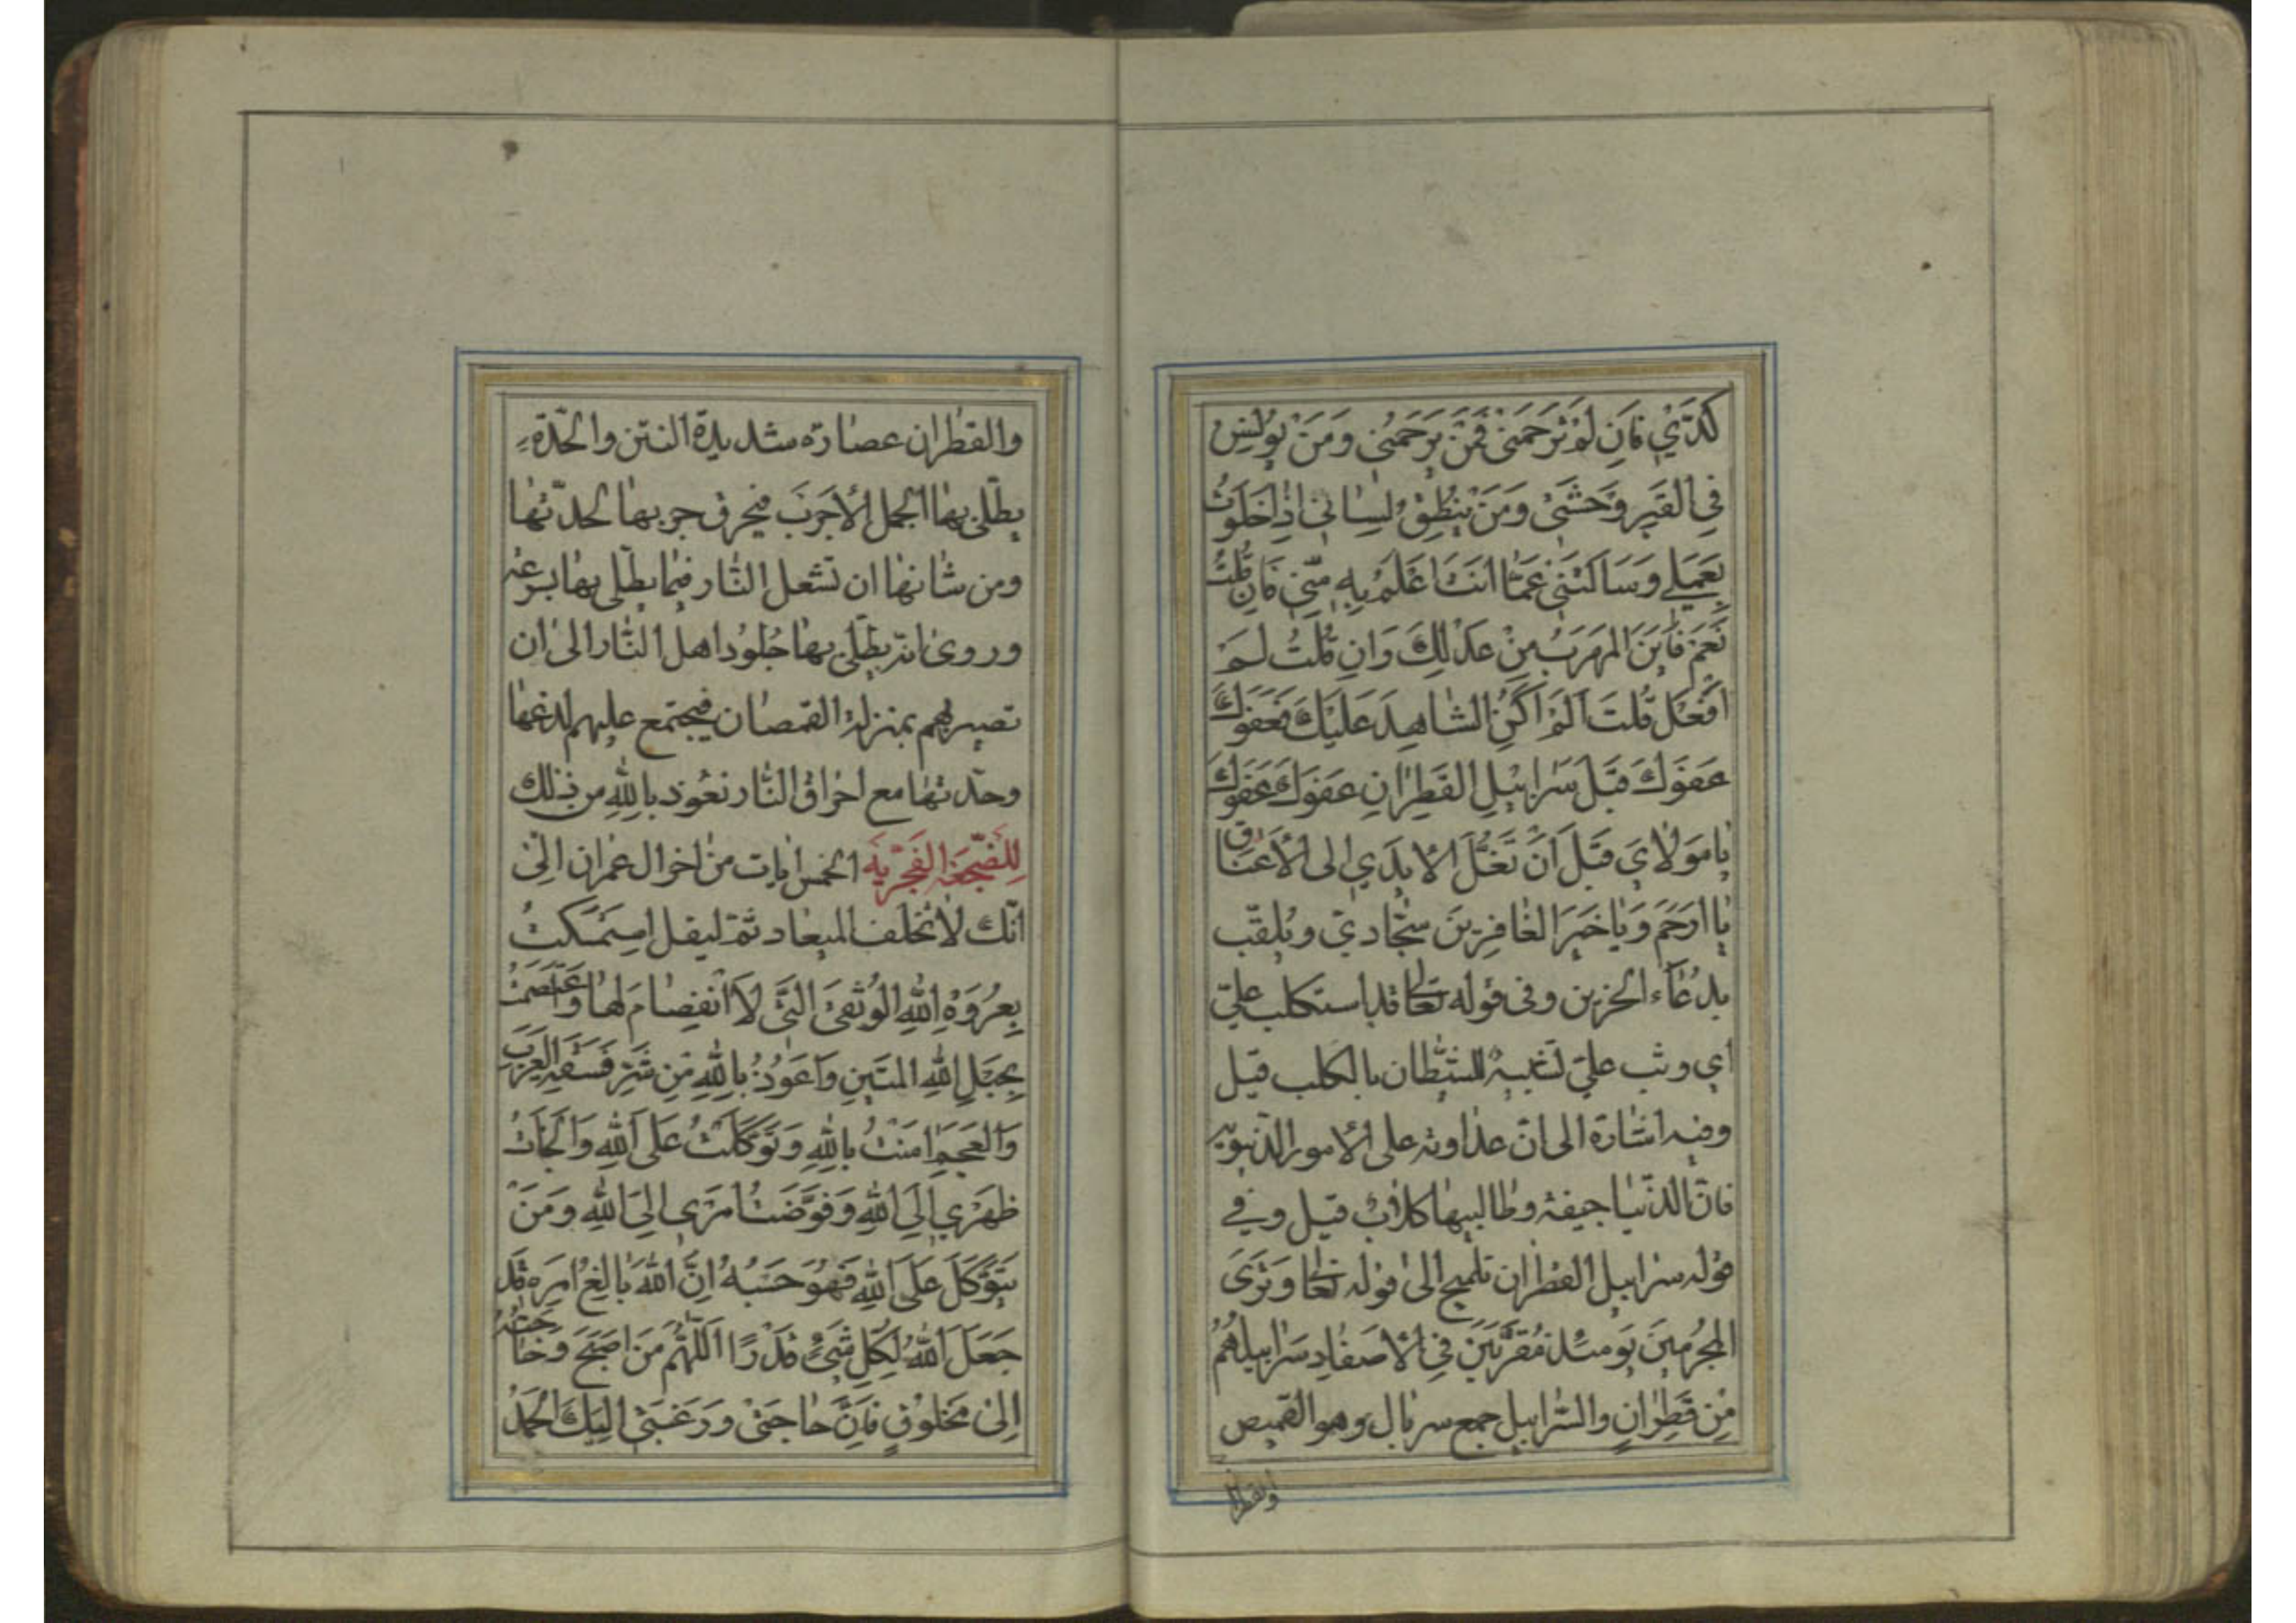 كَدّيَ فَاِن لَم تَرحَمني فَمَن يَرحَمُني وَمَن يُونِس
فِي القَبرِ وَحشَتي وَمَن يُنطِقُ لِساني اِذا خَلَوتُ
بِعَمَلي وَسَائَلتَني عَمّا اَنتَ اَعلَمُ بِهِ مِنّي فَاِن قُلتُ
نَعَم فَاَينَ المَهرَبُ مِن عَدلِكَ وَاِن قُلتُ لَم
اَفعَل قُلتَ اَلَم اَكُنِ الشاهِدَ عَلَيكَ فَعَفوَكَ
عَفوَكَ قَبلَ سَرابيلِ القَطِرانِ عَفوَكَ عَفوَكَ
يا مَولايَ قَبلَ اَن تُغَلَّ الاَيدي اِلى الاَعناق
يا ارحَمَ وَيا خَيرَ الغافِرينَ سجّادي ويلقّب
بدُعاء الحزين وفي قوله تعالى قد استكلب عليّ
اي وثب عليّ لتشبيه الشيطان بالكلب قيل
وفيه اشارة الى انّ عداوته على الامور الدّنيويه
فانّ الدّنيا جيفة وطالبيها كلاب قيل وفي
قوله سرابيل القطران تلميح الى قوله تعالى وَتَرَى
المجرُمينَ يَومَئذ مُقَرَّنينَ فِي الاَصفادِ سَرابيلهُم
مِن قَطِرانٍ والسّرابيل جمع سربال وهو القميص
والقطران
والقطران عصارة شديدة النتن والحدّة
يطلّى بها الجمل الاجرَب فيحرق جربها لحدّتها
ومن شانها ان تشعل النّار فيما يطلّى بها بسرعة
وروى انّه يطلّى بها جُلود اهل النّار الى ان
تصير لهم بمنزلة القمصان فيجتمع عليهم لدغها
وحدّتها مع احراق النّار نعوذ بالله من ذلك
لِلضّجعَة الفَجريّه الخمس ايات من اخر ال عمران الى
انّك لا تخلف الميعاد ثمّ ليقل استَمسَكتُ
بِعُروَةِ اللهِ الوُثقىَ الّتي لاَ انفِصامَ لَها وَاعتَصَمتُ
بِحَبلِ اللهِ المَتينِ وَاَعوُذُ بِاللهِ مِن شَرِّ فَسَقَةِ العَرَبِ
وَالعَجَمِ امَنتُ بِاللهِ وَتَوَكَّلتُ عَلىَ اللهِ وَاَلجَأتُ
ظَهري اِلَى اللهِ وَفَوَّضتُ اَمري اِلىَ اللهِ وَمَن
يَتَوَكَّل عَلَى اللهِ فَهُوَ حَسبُهُ اِنَّ اللهَ بالِغُ اَمرِهِ قَد
جَعَلَ اللهُ لِكُلِّ شَيءٍ قَدرًا اَللّهُمَّ مَن اَصبَحَ وَحاجَتُهُ
اِلى مَخلوُقٍ فَاِنَّ حاجَتي وَرَغبَتي اِلَيكَ الحَمدُ